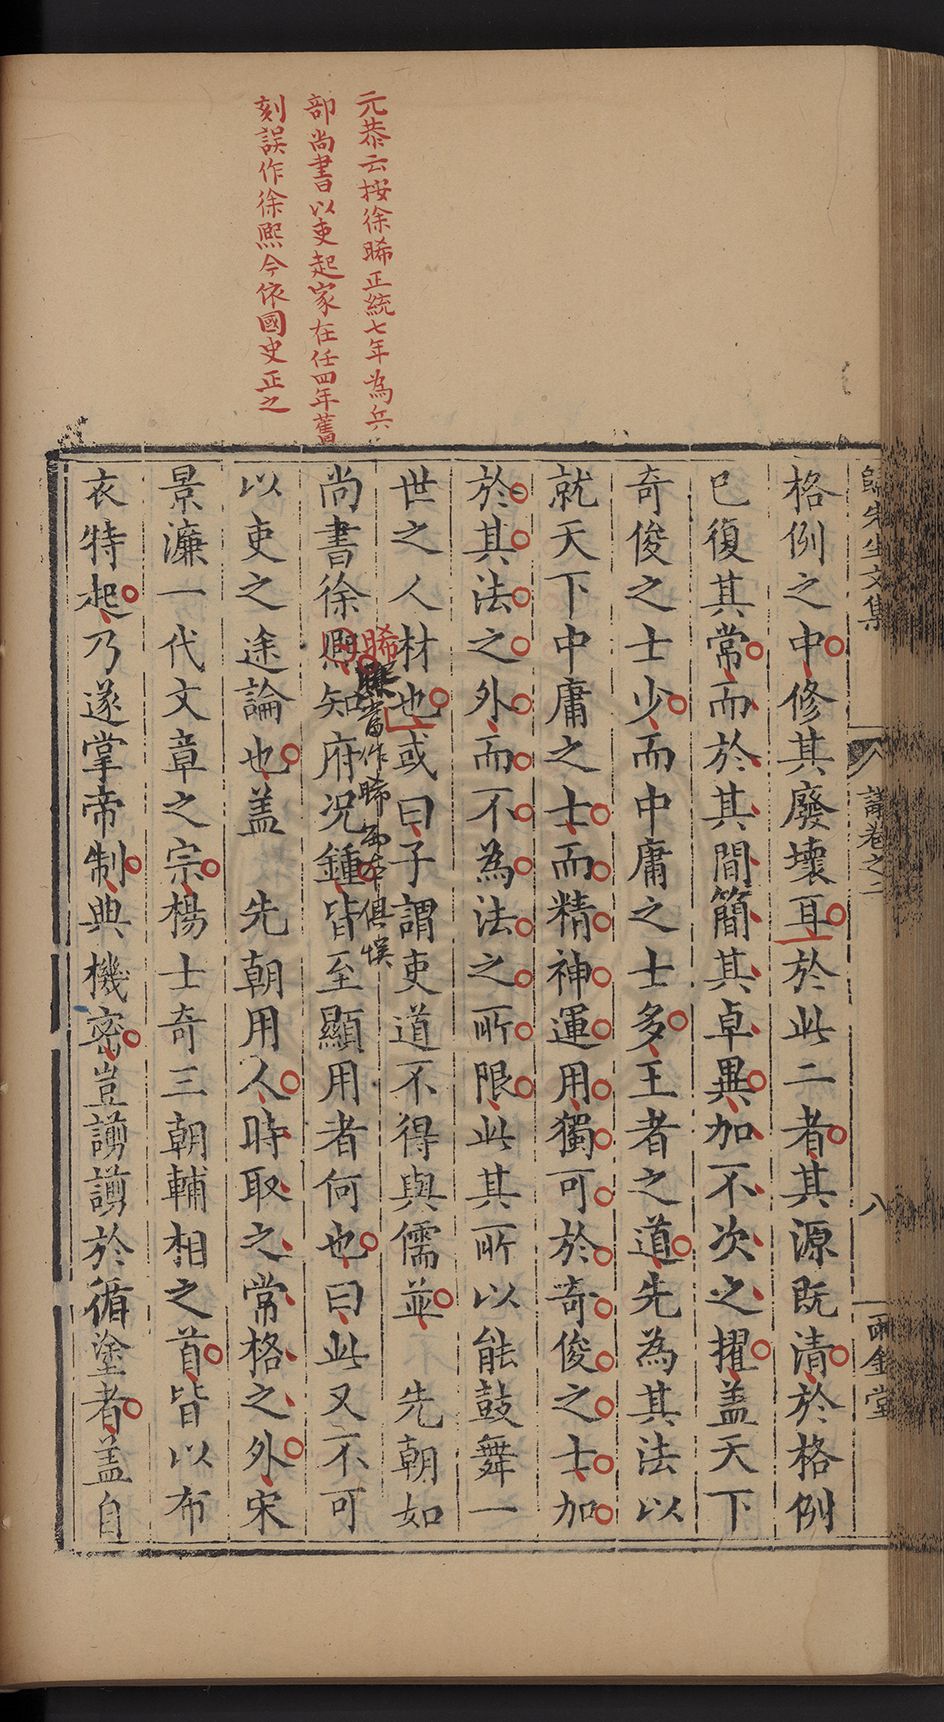 元恭云按徐晞正統七年為兵
部尚書以吏起家在任四年舊
刻誤作徐熙今依國史正之
歸先生文集
論卷之二
八
雨金堂
格例之中修其廢壞耳於此二者其源既清於格例
已復其常而於其間簡其卓異加不次之擢蓋天下
奇俊之士少而中庸之士多王者之道先為其法以
就天下中庸之士而精神運用獨可於奇俊之士加
於其法之外而不為法之所限此其所以能鼓舞一
世之人材也或曰子謂吏道不得與儒並 先朝如
晞
熙當作晞兩本俱悞
尚書徐熙知府況鍾皆至顯用者何也曰此又不可
以吏之途論也蓋 先朝用人時取之常格之外宋
景濂一代文章之宗楊士奇三朝輔相之首皆以布
衣特起乃遂掌帝制典機密豈謭謭於循塗者蓋自